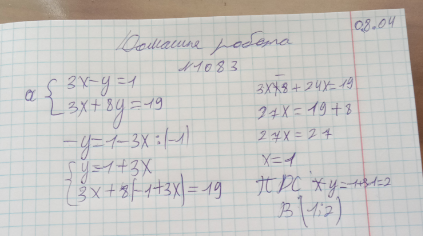 08.04
Домашня робота
№1083
а { 3x-y=1
3x+8y=19
-y=1-3x :(-1)
{ y=-1+3x
3x+8(-1+3x)=19
3x-8+24x=19
27x=19+8
27x=27
x=1
ПРС x y=-1+3·1=2
В (1;2)